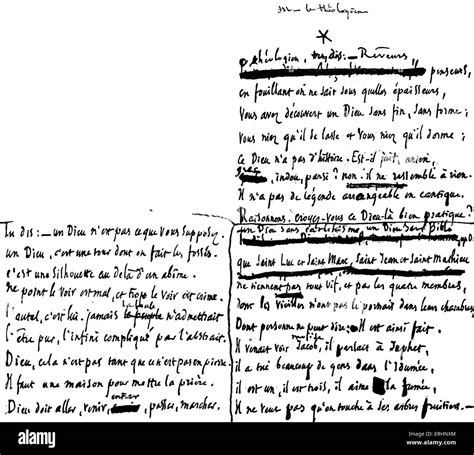 le théologien
*
théologien, tu dis : — Rêveurs
penseurs,
en fouillant on ne sait sous quelles épaisseurs,
Vous avez découvert un Dieu sans fin, sans forme ;
Vous niez qu'il se lasse et Vous niez qu'il dorme ;
Ce Dieu n'a pas d'histoire. Est-il juif, arien,
grec, indou, parsi ? non. il ne ressemble à rien.
Il n'a pas de légende arrangeable en cantique.
Raisonnons : croyez-vous ce Dieu-là bien pratique ?
un Dieu sans catéchisme, un Dieu sans Bible
que Saint Luc et Saint Marc, Saint Jean et Saint Mathieu
ne tiennent pas tout vif, et par les quatre membres,
dont les Vieilles n'ont pas le portrait dans leurs chambres
Dont personne ne peut dire : Il est ainsi fait.
Il venait voir Jacob, il parlait à Japhet,
il a tué beaucoup de gens dans l'Idumée,
il est un, il est trois, il aime la fumée,
Il ne veut pas qu'on touche à ses arbres fruitiers. —
Tu dis : — un Dieu n'est pas ce que vous supposez.
un Dieu, c'est une tour dont on fait les fossés.
c'est une silhouette au delà d'un abîme.
ne point le voir est mal, et trop le voir est crime.
l'autel, c'est lui. jamais la foule n'admettrait
l'être pur, l'infini compliqué par l'abstrait.
Dieu, cela n'est pas tant que ce n'est pas en pierre.
Il faut une maison pour mettre la prière.
Dieu doit aller, venir, entrer, passer, marcher.
alamy
Image ID: ERHNXM
www.alamy.com